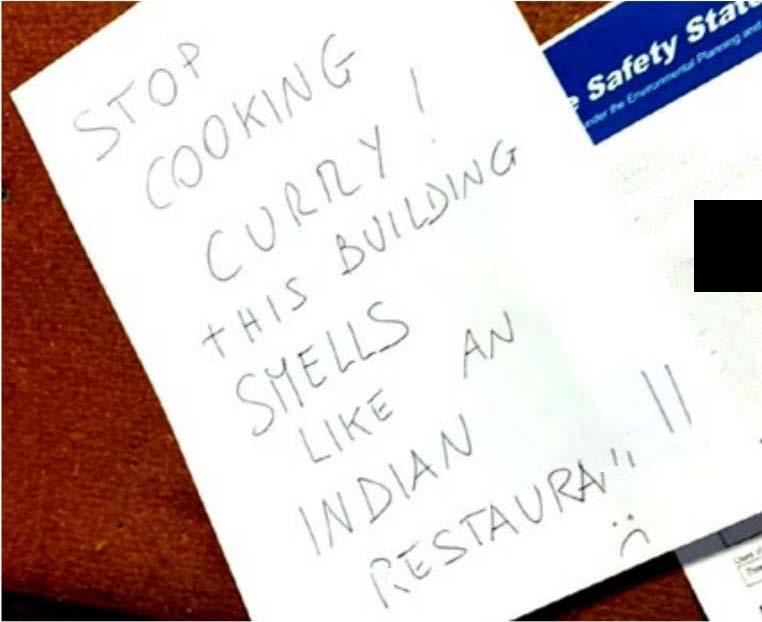 STOP
COOKING
CURRY!
THIS BUILDING
SMELLS
LIKE AN
INDIAN
e Safety State
under the Environmental Planning and